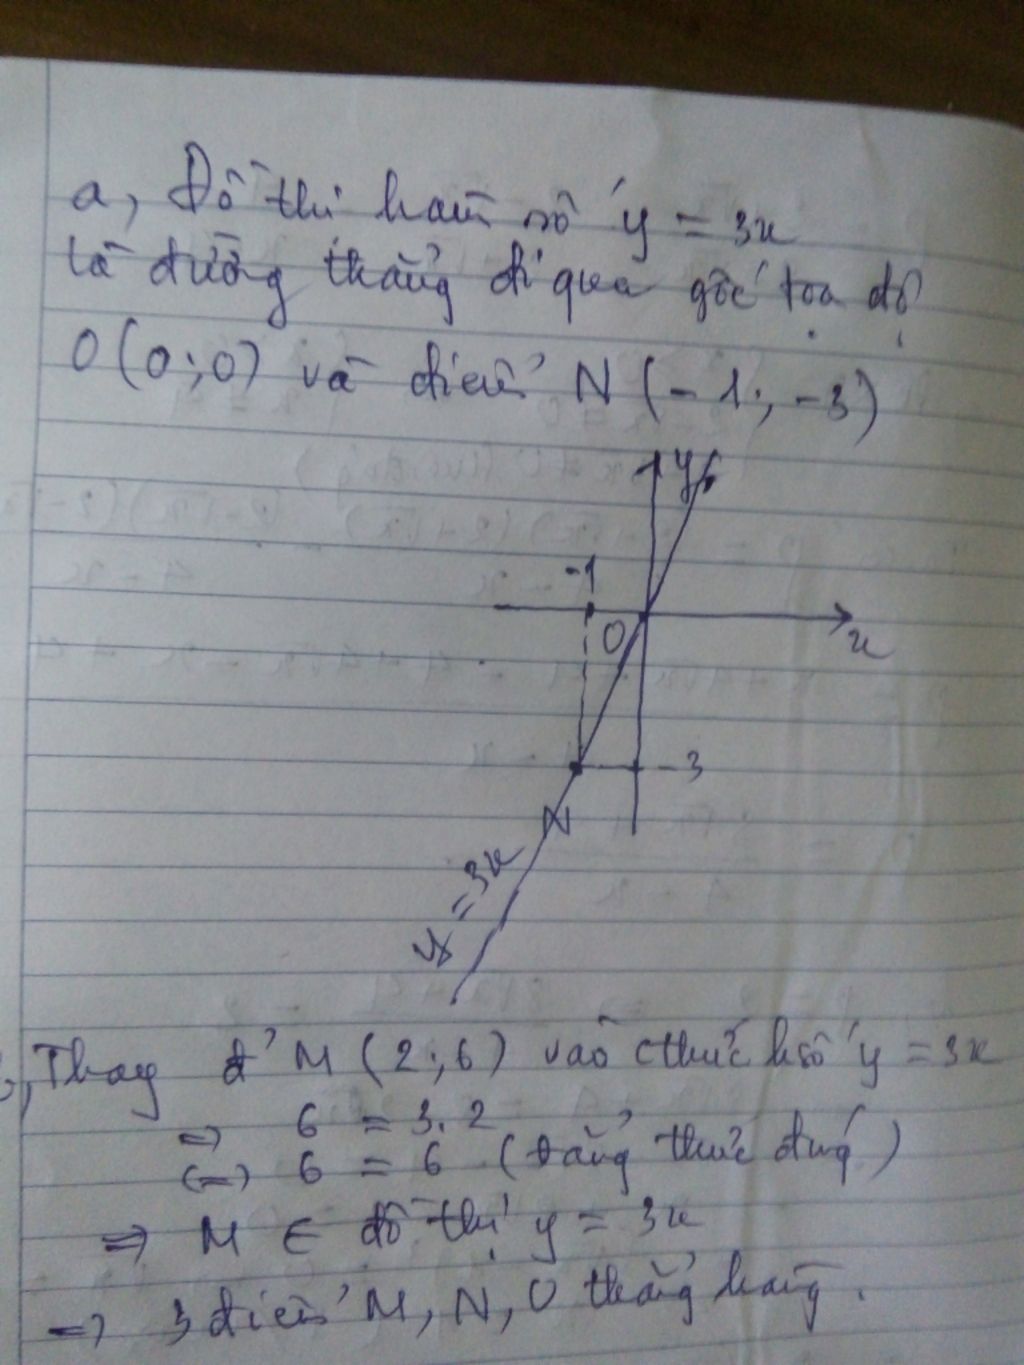 a, Đồ thị hàm số y = 3x
là đường thẳng đi qua gốc tọa độ
O (0;0) và điểm N (-1; -3)
y
-1
O
x
-3
N
y = 3x
b, Thay đ' M (2;6) vào cthức hsố y = 3x
=> 6 = 3.2
(=) 6 = 6 (đẳng thức đúng)
=> M ∈ đồ thị y = 3x
=> 3 điểm M, N, O thẳng hàng.